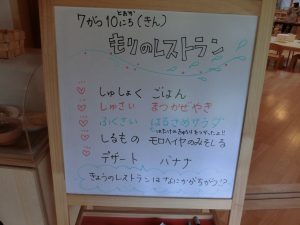 7がつ10にち(きん)
とおか
もりのレストラン
しゅしょく ごはん
しゅさい まつかぜやき
ふくさい はるさめサラダ
しるもの モロヘイヤのみそしる
デザート バナナ
きょうのレストランはなにかがちがう!?